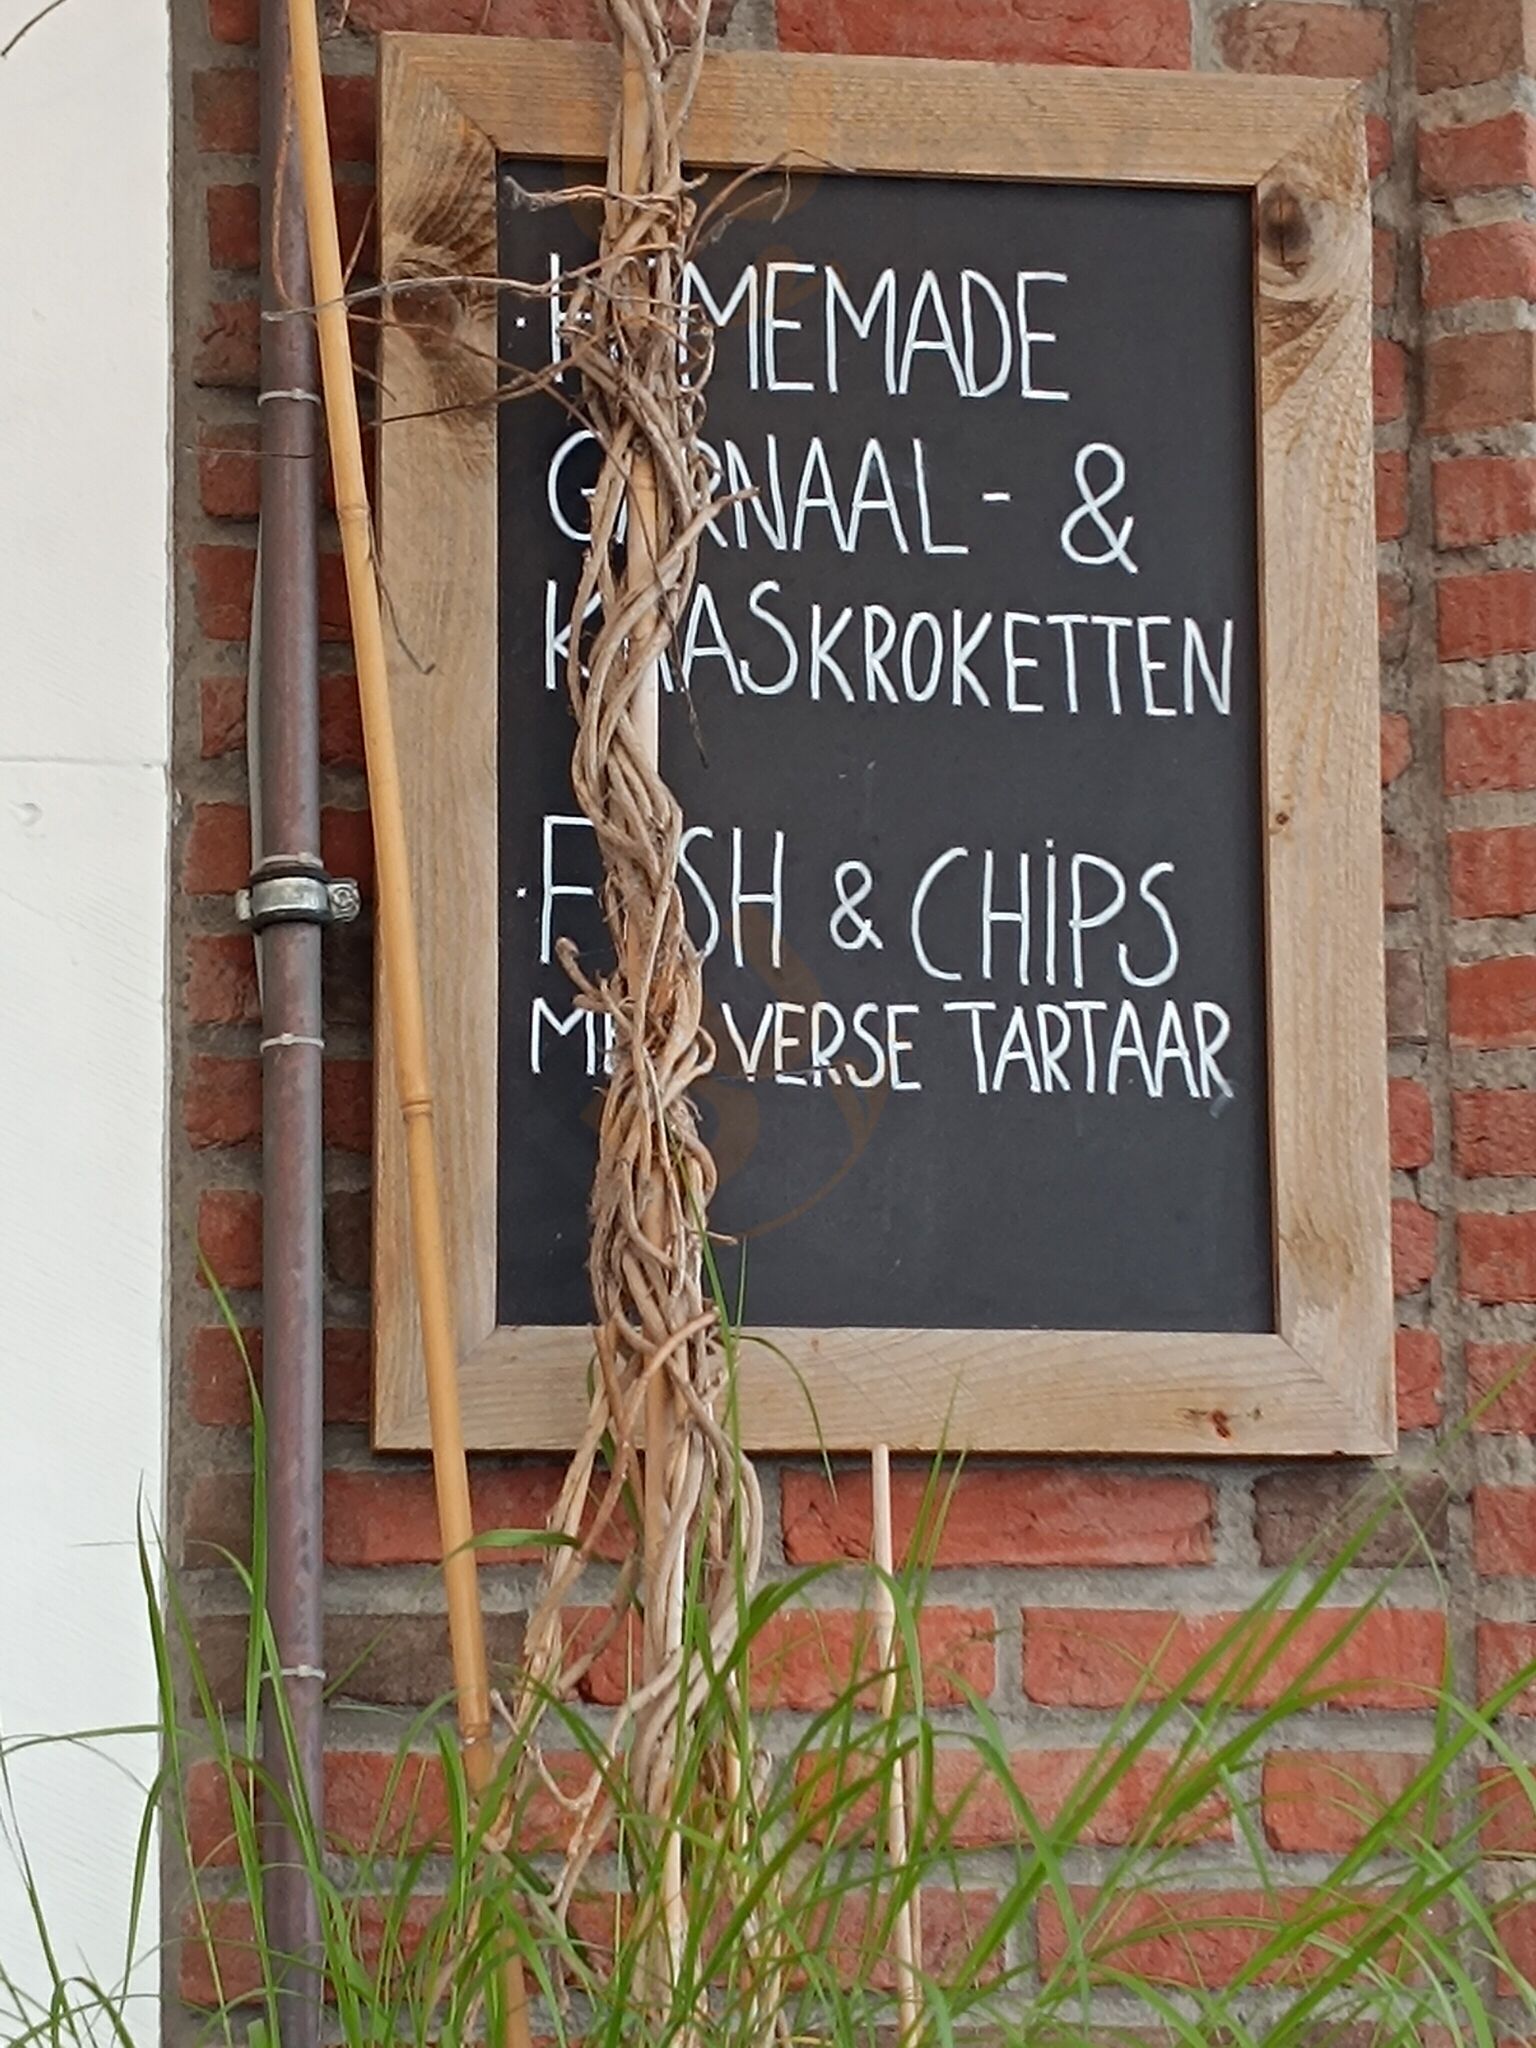 · HOMEMADE
GARNAAL - &
KAASKROKETTEN
· FISH & CHIPS
MET VERSE TARTAAR